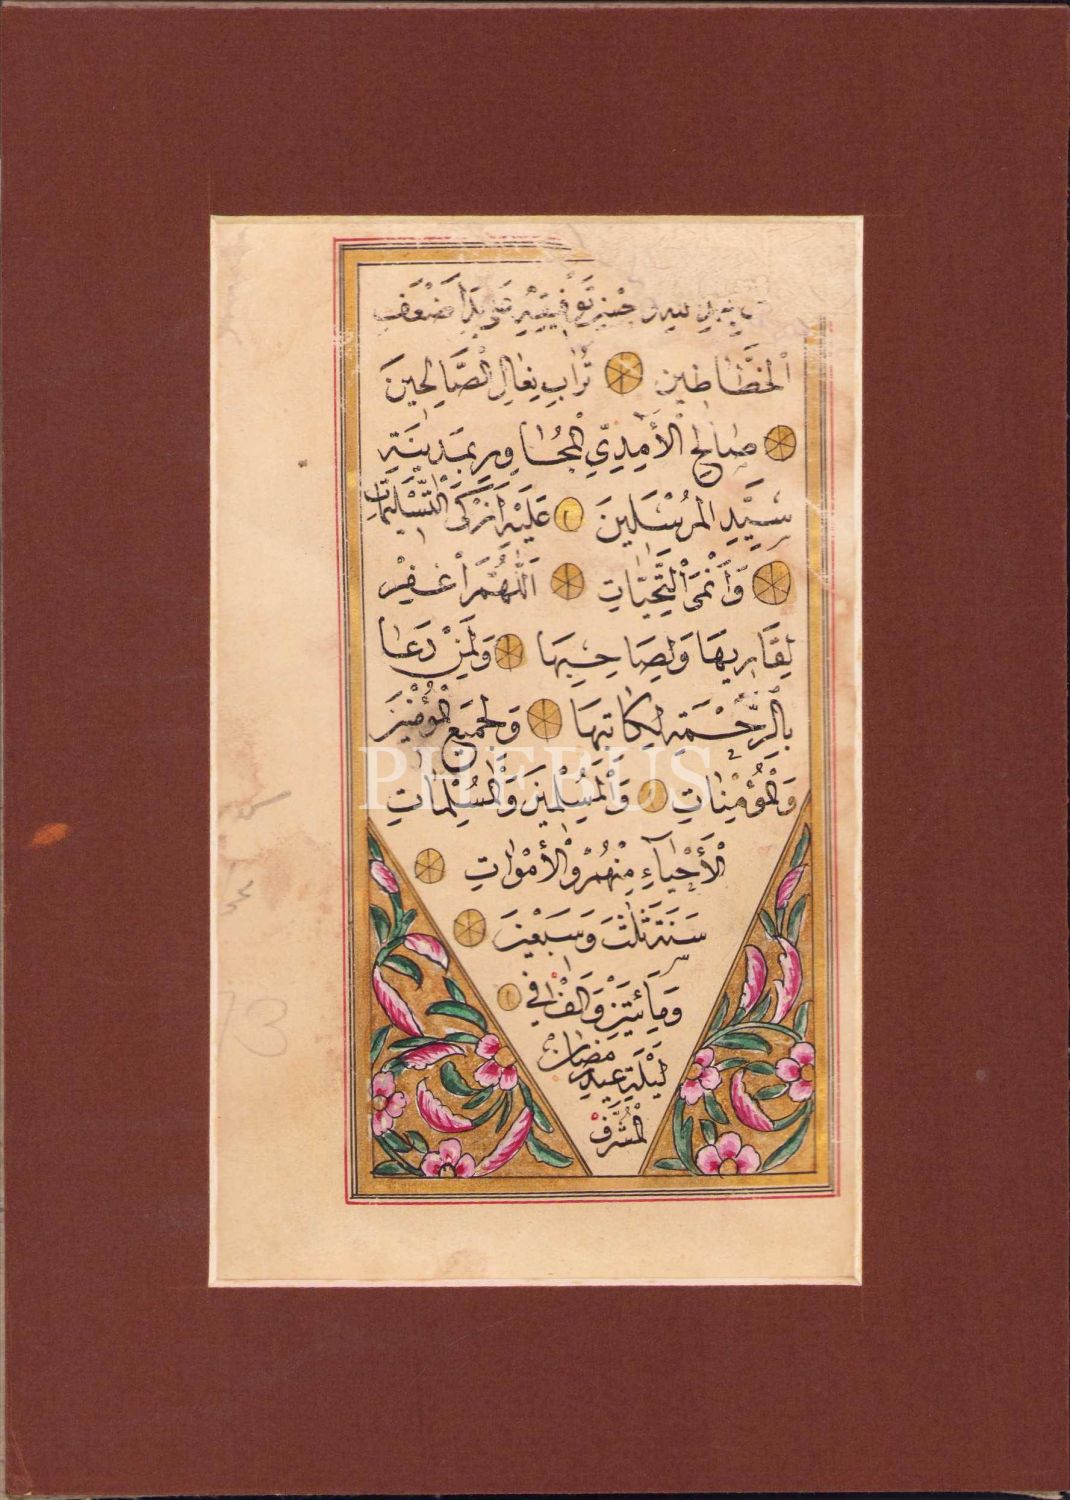 توفيقه على يد اضعف
الخطاطين تراب نعال الصالحين
صالح الأمدي المجاور بمدينة
سيد المرسلين عليه ازكى التسليمات
وأنمى التحيات اللهم اغفر
لقاريها ولصاحبها ولمن دعا
بالرحمة لكاتبها ولجميع المؤمنين
والمؤمنات والمسلمين والمسلمات
الأحياء منهم والأموات
سنة ثلث وسبعين
ومأتين والف في
ليلة عيد رمضان
المشرف
PHEBUS
13